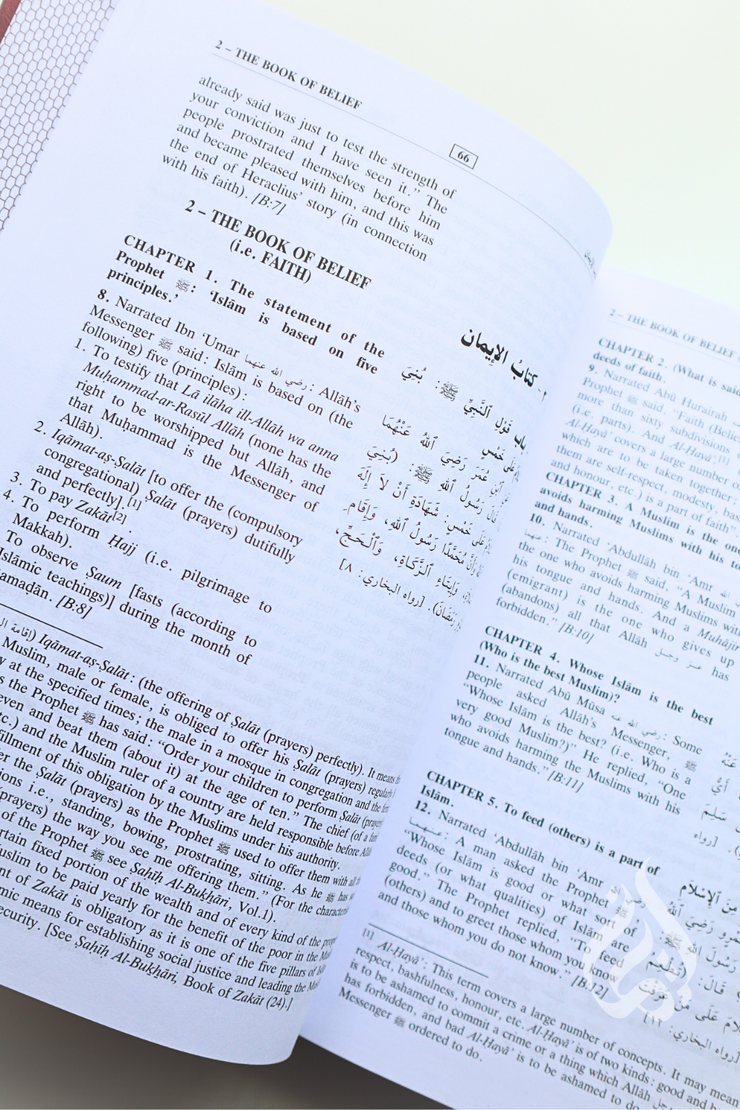 2 – THE BOOK OF BELIEF
66
already said was just to test the strength of
your conviction and I have seen it.” The
people prostrated themselves before him
and became pleased with him, and this was
the end of Heraclius’ story (in connection
with his faith). [B:7]
2 – THE BOOK OF BELIEF
(i.e. FAITH)
CHAPTER 1. The statement of the
Prophet ﷺ: ‘Islām is based on five
principles.’
8. Narrated Ibn ‘Umar رضي الله عنهما: Allāh’s
Messenger ﷺ said: Islām is based on (the
following) five (principles):
1. To testify that Lā ilāha ill-Allāh wa anna
Muhammad-ar-Rasūl Allāh (none has the
right to be worshipped but Allāh, and
that Muhammad is the Messenger of
Allāh).
2. Iqāmat-aṣ-Ṣalāt [to offer the (compulsory
congregational) Ṣalāt (prayers) dutifully
and perfectly].[1]
3. To pay Zakāt[2].
4. To perform Ḥajj (i.e. pilgrimage to
Makkah).
To observe Ṣaum [fasts (according to
Islāmic teachings)] during the month of
amaḍān. [B:8]
كتابُ الإيمان
قَوْلِ النَّبِيِّ ﷺ: بُنِيَ
عَلَى خَمْسٍ
عُمَرَ رَضِيَ اللهُ عَنْهُمَا
رَسُولُ اللهِ ﷺ: (بُنِيَ
عَلَى خَمْسٍ: شَهَادَةِ أَنْ لَا إِلَهَ
مُحَمَّدًا رَسُولُ اللهِ، وَإِقَامِ
وَإِيتَاءِ الزَّكَاةِ، وَالْحَجِّ،
[رواه البخاري: ٨]
Iqāmat-aṣ-Ṣalāt: (the offering of Ṣalāt (prayers) perfectly). It means
Muslim, male or female, is obliged to offer his Ṣalāt (prayers)
at the specified times; the male in a mosque in congregation and the
the Prophet ﷺ has said: “Order your children to perform Ṣalāt
and beat them (about it) at the age of ten.” The chief (of a
and the Muslim ruler of a country are held responsible before
of this obligation by the Muslims under his authority.
the Ṣalāt (prayers) as the Prophet ﷺ used to offer them with
i.e., standing, bowing, prostrating, sitting. As he ﷺ has
(prayers) the way you see me offering them.” (For the
of the Prophet ﷺ see Ṣaḥīḥ Al-Bukhāri, Vol.1).
fixed portion of the wealth and of every kind of the
to be paid yearly for the benefit of the poor in the
of Zakāt is obligatory as it is one of the five pillars of
means for establishing social justice and leading the
security. [See Ṣaḥīḥ Al-Bukhāri, Book of Zakāt (24).]
2 – THE BOOK OF BELIEF
CHAPTER 2. (What is said
deeds of faith.
9. Narrated Abū Hurairah
Prophet ﷺ said, “Faith
more than sixty subdivisions
(i.e. parts). And Al-Ḥayā’[1]
Al-Ḥayā’ covers a large number of
which are to be taken together;
them are self-respect, modesty,
and honour, etc.) is a part of faith
CHAPTER 3. A Muslim is the one
avoids harming Muslims with his
and hands.
10. Narrated ‘Abdullāh bin ‘Amr
The Prophet ﷺ said, “A Muslim
the one who avoids harming Muslims with
his tongue and hands. And a Muhājir
(emigrant) is the one who gives up
(abandons) all that Allāh عز وجل has
forbidden.” [B:10]
CHAPTER 4. Whose Islām is the best
(Who is the best Muslim)?
11. Narrated Abū Mūsa رضي الله عنه: Some
people asked Allāh’s Messenger, ﷺ
“Whose Islām is the best? (i.e. Who is a
very good Muslim?)” He replied, “One
who avoids harming the Muslims with his
tongue and hands.” [B:11]
CHAPTER 5. To feed (others) is a part of
Islām.
12. Narrated ‘Abdullāh bin ‘Amr رضي الله
عنهما: A man asked the Prophet ﷺ,
“Whose Islām is good or what sort of
deeds (or what qualities) of Islām are
good.” The Prophet replied, “To feed
(others) and to greet those whom you know
and those whom you do not know.” [B:12]
[1] Al-Ḥayā’: This term covers a large number of concepts. It may mean
respect, bashfulness, honour, etc. Al-Ḥayā’ is of two kinds: good and
is to be ashamed to commit a crime or a thing which Allāh
has forbidden, and bad Al-Ḥayā’ is to be ashamed to do
Messenger ﷺ ordered to do.